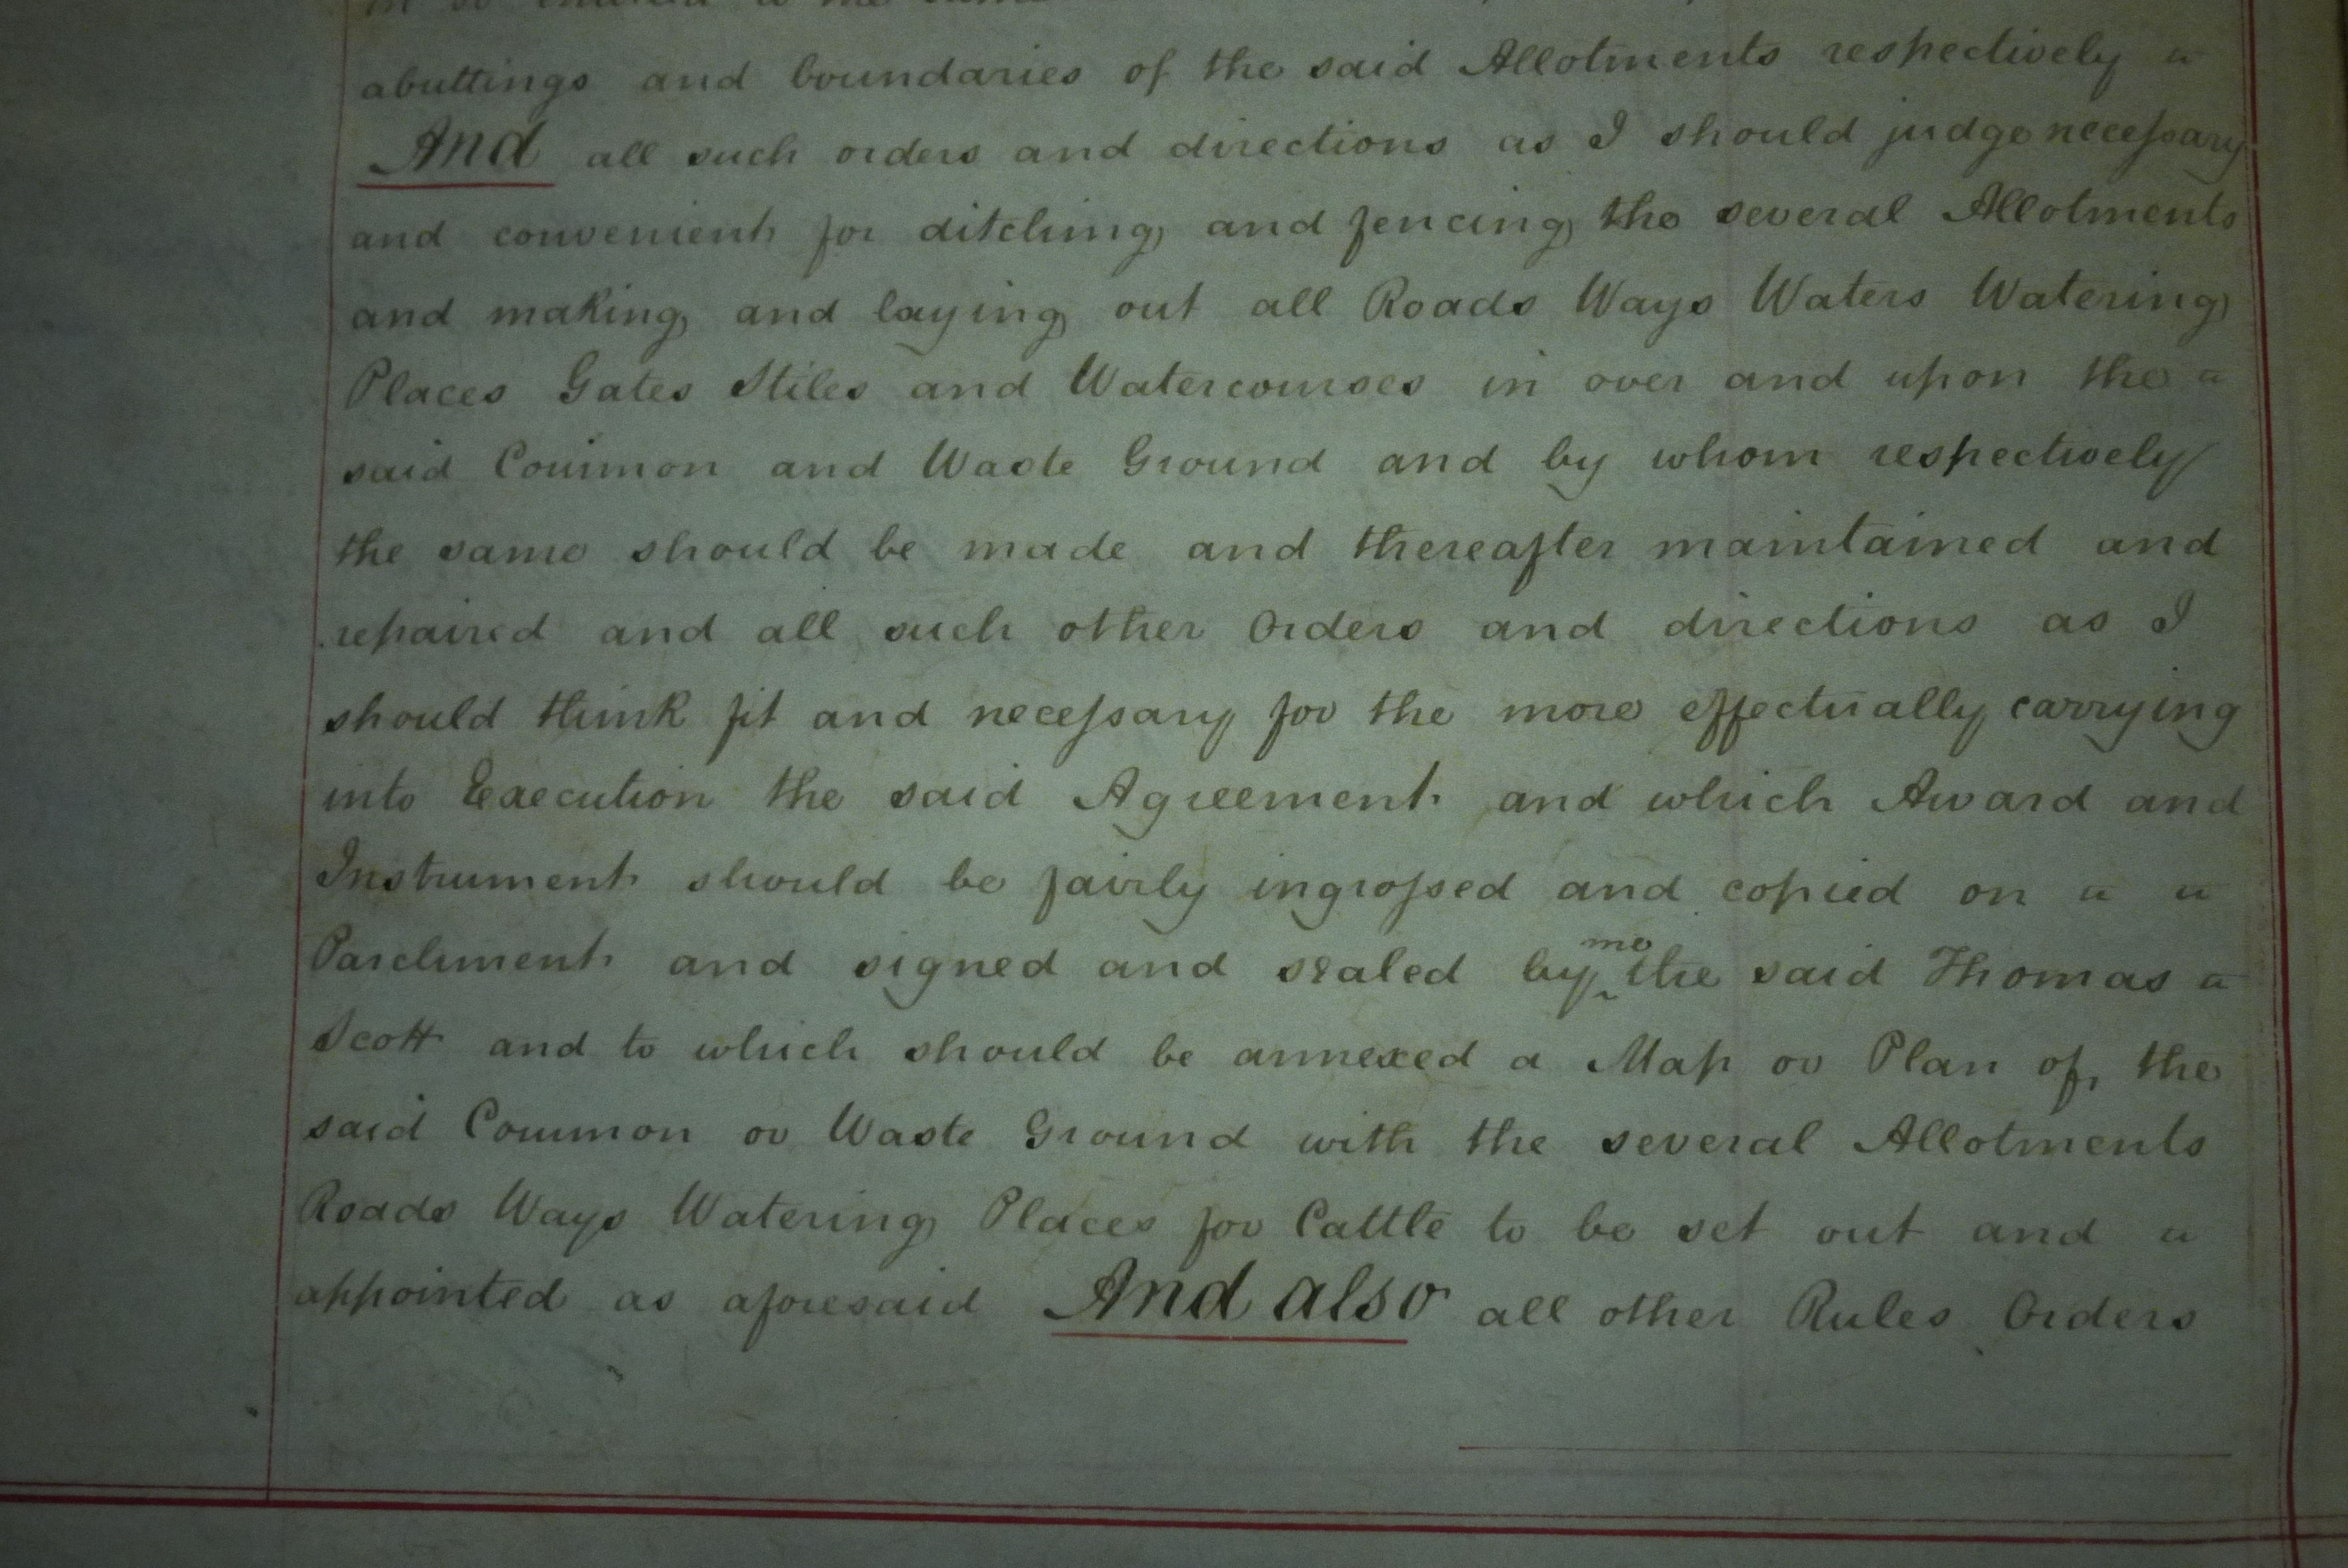 abuttings and boundaries of the said Allotments respectively
And all such orders and directions as I should judge necessary
and convenient for ditching and fencing the several Allotments
and making and laying out all Roads Ways Waters Watering
Places Gates Stiles and Watercourses in over and upon the
said Common and Waste Ground and by whom respectively
the same should be made and thereafter maintained and
repaired and all such other Orders and directions as I
should think fit and necessary for the more effectually carrying
into Execution the said Agreement and which Award and
Instrument should be fairly ingrossed and copied on
Parchment and signed and sealed by me the said Thomas
Scott and to which should be annexed a Map or Plan of the
said Common or Waste Ground with the several Allotments
Roads Ways Watering Places for Cattle to be set out and
appointed as aforesaid And also all other Rules Orders